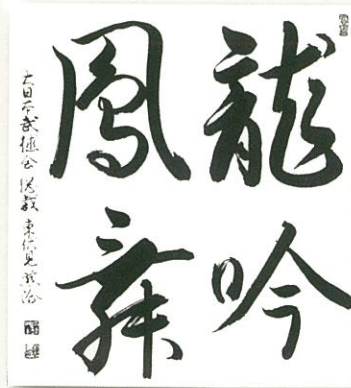 龍吟
鳳舞
大日本武徳会 総裁 東伏見慈洽